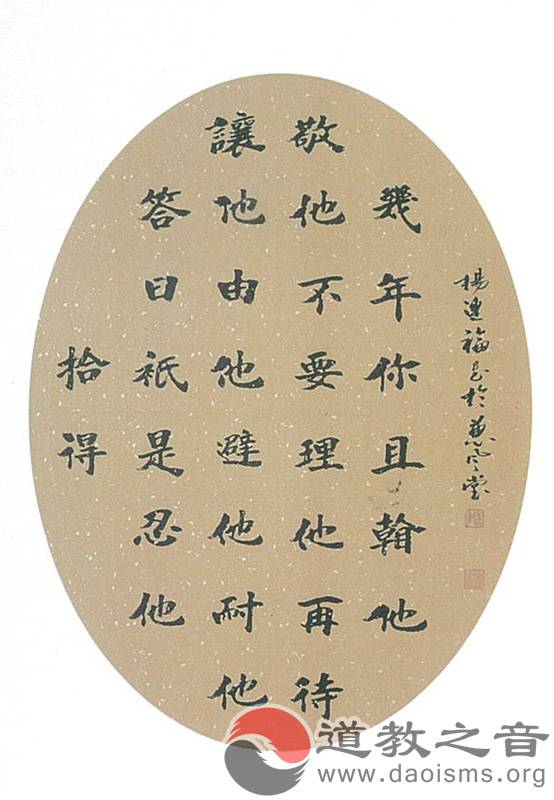 拾得
答曰衹是忍他
讓他由他避他耐他
敬他不要理他再待
幾年你且翰他
楊福書於風堂
道教之音
www.daoisms.org